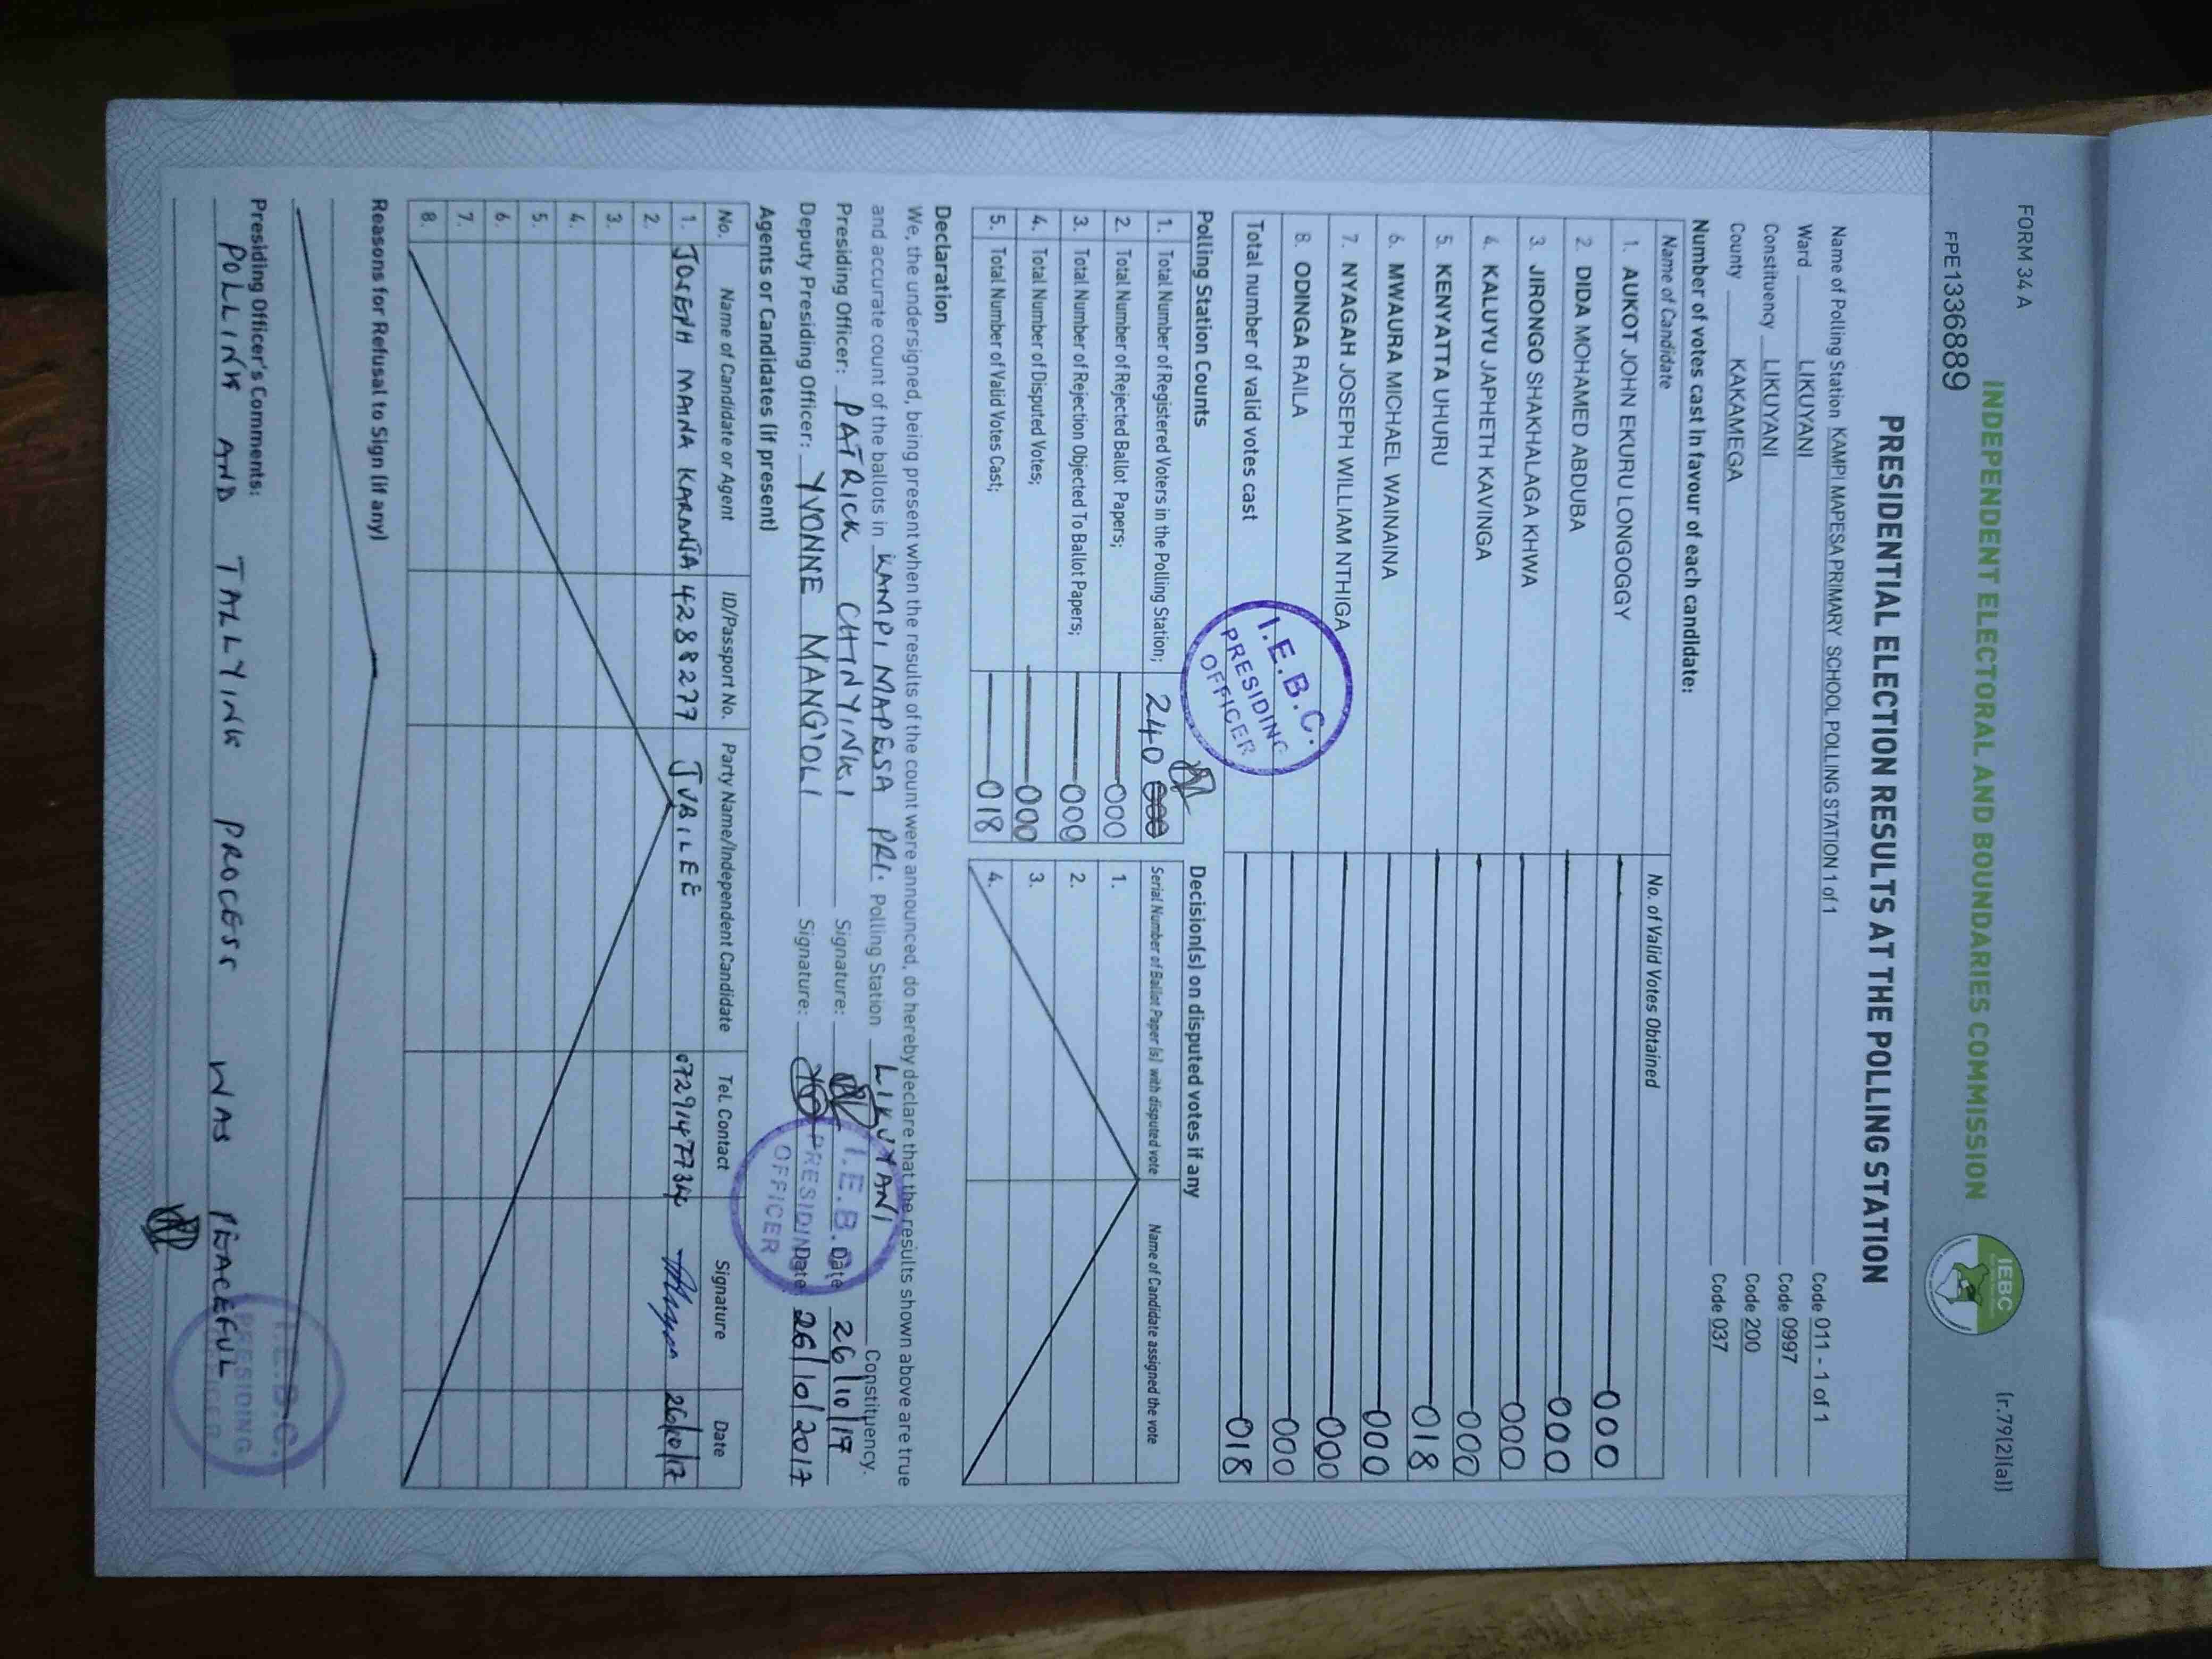 FORM 34 A
INDEPENDENT ELECTORAL AND BOUNDARIES COMMISSION
IEBC
(r.79(2)(a))
FPE1336889
PRESIDENTIAL ELECTION RESULTS AT THE POLLING STATION
Name of Polling Station KAMPI MAPESA PRIMARY SCHOOL POLLING STATION 1 of 1 Code 011 - 1 of 1
Ward LIKUYANI Code 0997
Constituency LIKUYANI Code 200
County KAKAMEGA Code 037
Number of votes cast in favour of each candidate:
Name of Candidate No. of Valid Votes Obtained
1. AUKOT JOHN EKURU LONGOGGY 000
2. DIDA MOHAMED ABDUBA 000
3. JIRONGO SHAKHALAGA KHWA 000
4. KALUYU JAPHETH KAVINGA 000
5. KENYATTA UHURU 018
6. MWAURA MICHAEL WAINAINA 000
7. NYAGAH JOSEPH WILLIAM NTHIGA 000
8. ODINGA RAILA 000
Total number of valid votes cast 018
I.E.B.C.
PRESIDING
OFFICER
Polling Station Counts
1. Total Number of Registered Voters in the Polling Station; 240
2. Total Number of Rejected Ballot Papers; 000
3. Total Number of Rejection Objected To Ballot Papers; 000
4. Total Number of Disputed Votes; 000
5. Total Number of Valid Votes Cast; 018
Decision(s) on disputed votes if any
Serial Number of Ballot Paper (s) with disputed vote Name of Candidate assigned the vote
1.
2.
3.
4.
Declaration
We, the undersigned, being present when the results of the count were announced, do hereby declare that the results shown above are true
and accurate count of the ballots in KAMPI MAPESA PRI. Polling Station LIKUYANI Constituency.
Presiding Officer: PATRICK CHINYINKI Signature: Date 26/10/17
Deputy Presiding Officer: YVONNE MANGIOLI Signature: Date 26/10/2017
I.E.B.C.
PRESIDING
OFFICER
Agents or Candidates (if present)
No. Name of Candidate or Agent ID/Passport No. Party Name/Independent Candidate Tel. Contact Signature Date
1. JOSEPH MAINA 4288277 JUBILEE 26/10/17
2.
3.
4.
5.
6.
7.
8.
Reasons for Refusal to Sign (if any)
Presiding Officer's Comments:
POLLING AND TALLYING PROCESS WAS PEACEFUL
I.E.B.C.
PRESIDING
OFFICER